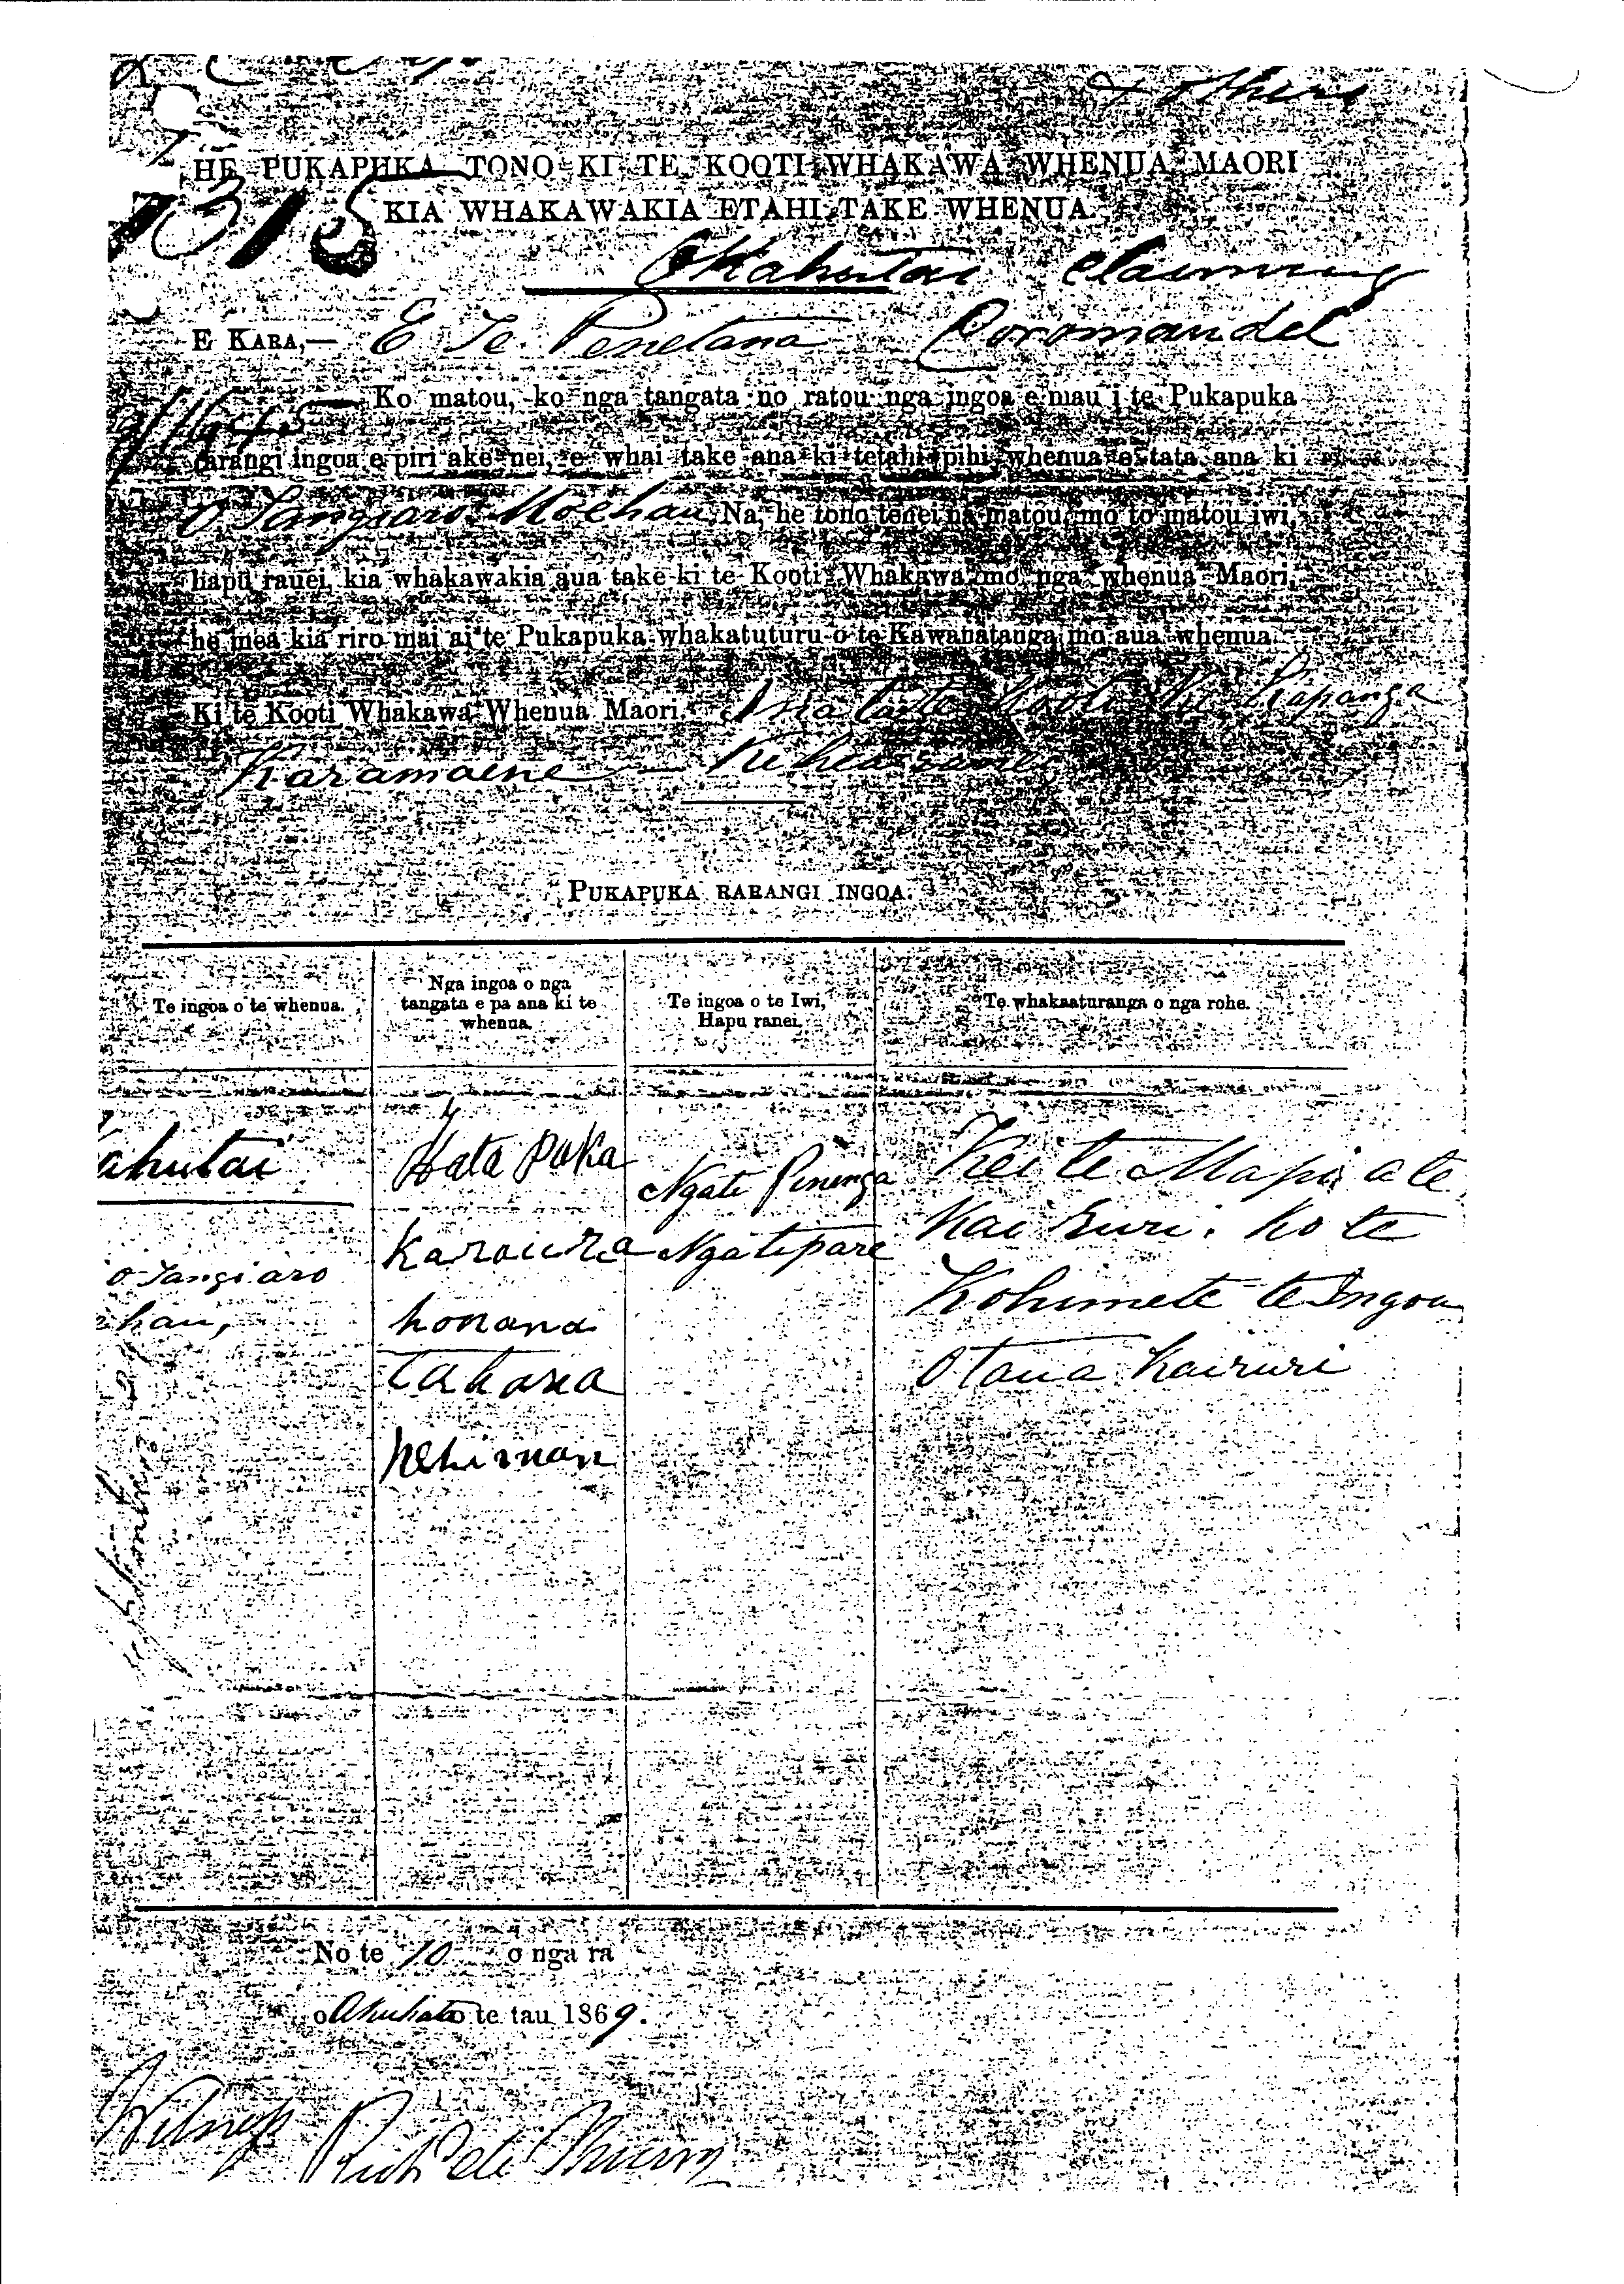 & others
HE PUKAPUKA TONO KI TE KOOTI WHAKAWA WHENUA MAORI
1315 KIA WHAKAWAKIA ETAHI TAKE WHENUA.
Okahutai Claiming
E KARA,— E Te Penetana Coromandel
Ko matou, ko nga tangata no ratou nga ingoa e mau i te Pukapuka
rarangi ingoa e piri ake nei, e whai take ana ki tetahi pihi whenua e tata ana ki
O Tangiaro Moehau Na, he tono tenei na matou, mo to matou iwi,
hapu ranei, kia whakawakia aua take ki te Kooti Whakawa mo nga whenua Maori,
he mea kia riro mai ai te Pukapuka whakatuturu o te Kawanatanga mo aua whenua.
Ki te Kooti Whakawa Whenua Maori. Kapanga
Karamaene
PUKAPUKA RARANGI INGOA.
Te ingoa o te whenua.
Nga ingoa o nga
tangata e pa ana ki te
whenua.
Te ingoa o te Iwi,
Hapu ranei.
Te whakaaturanga o nga rohe.
ahutai
o Tangiaro
hau,
Hata Paka
Karauria
honana
Tahana
Ngati Pinenga
Ngatipare
Kei te Mapi a te
Kai Ruri. Ko te
Kohimete te Ingoa
o taua kairuri
No te 10 o nga ra
o Akuhata te tau 1869.
Witness